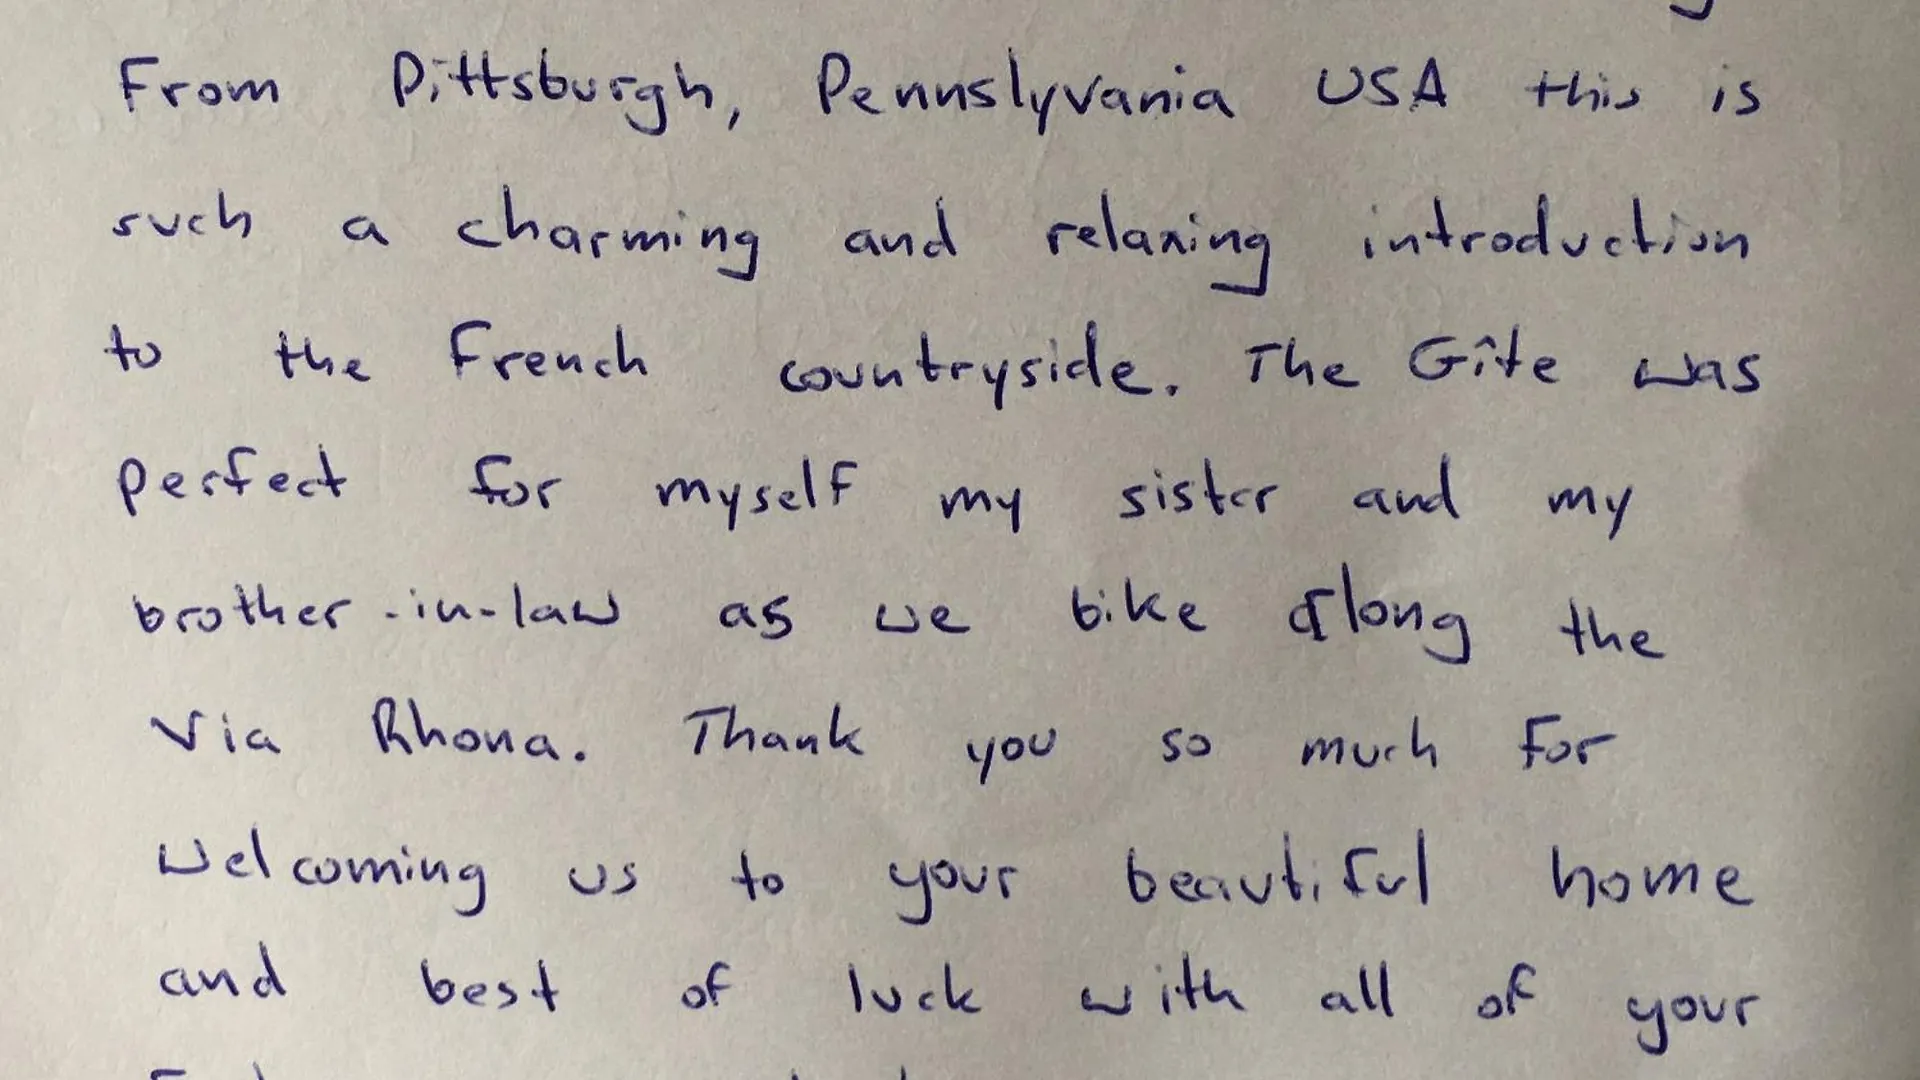 From Pittsburgh, Pennslyvania USA this is
such a charming and relaxing introduction
to the French countryside. The Gîte was
perfect for myself my sister and my
brother-in-law as we bike along the
Via Rhona. Thank you so much for
Welcoming us to your beautiful home
and best of luck with all of your